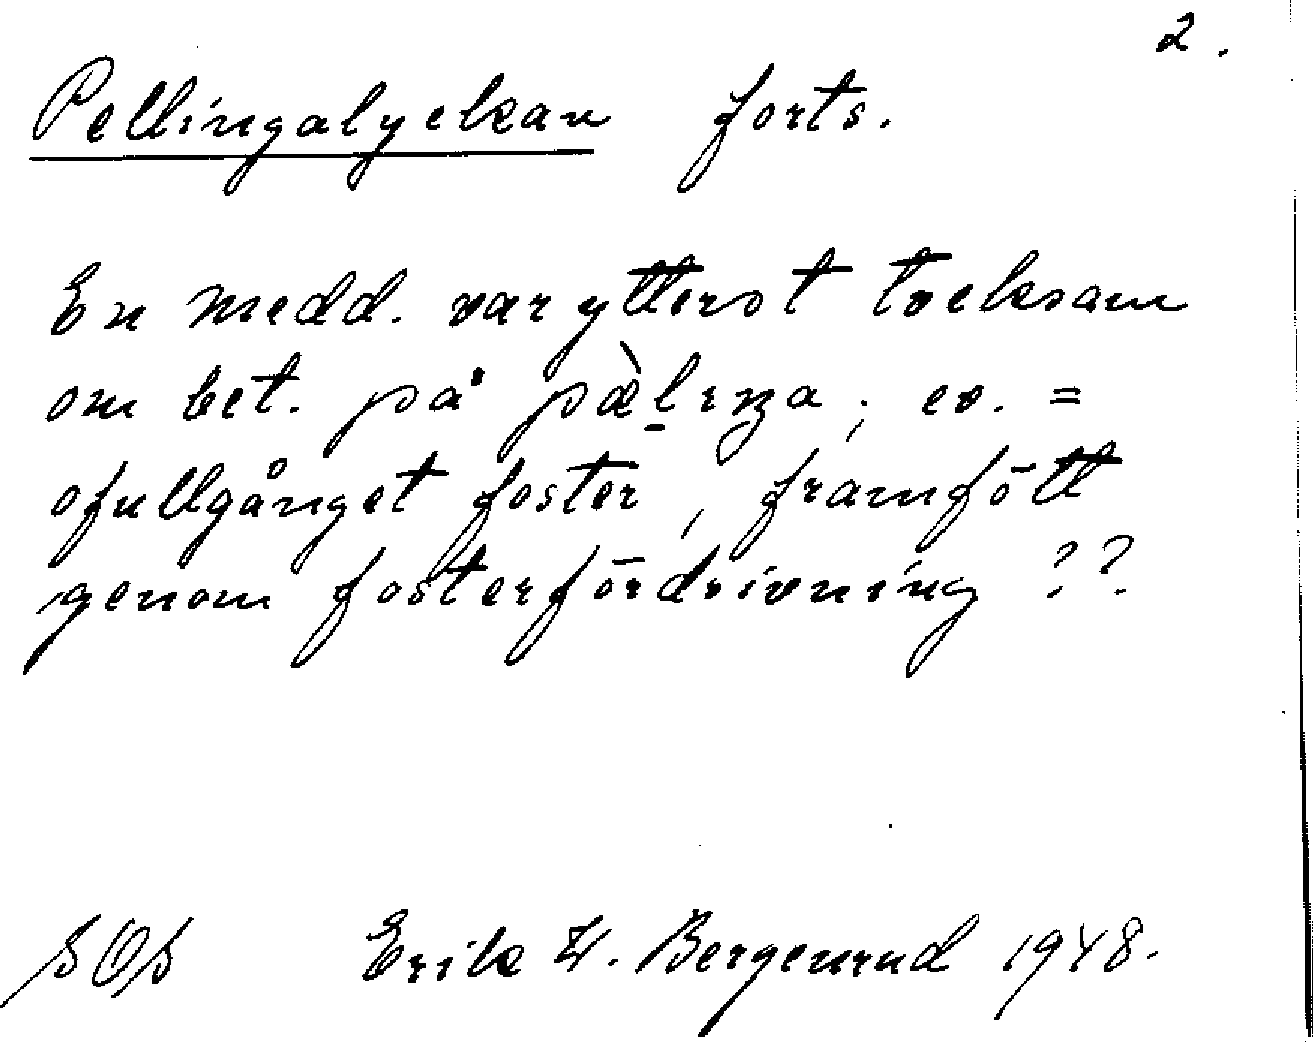 2.
Pellingalyckan forts.
En medd. var ytterst tveksam
om bet. på pæ̀l̠ıŋa; ev. =
ofullgånget foster, framfött
genom fosterfördrivning ??
SOS Erik W. Bergenrud 1948.